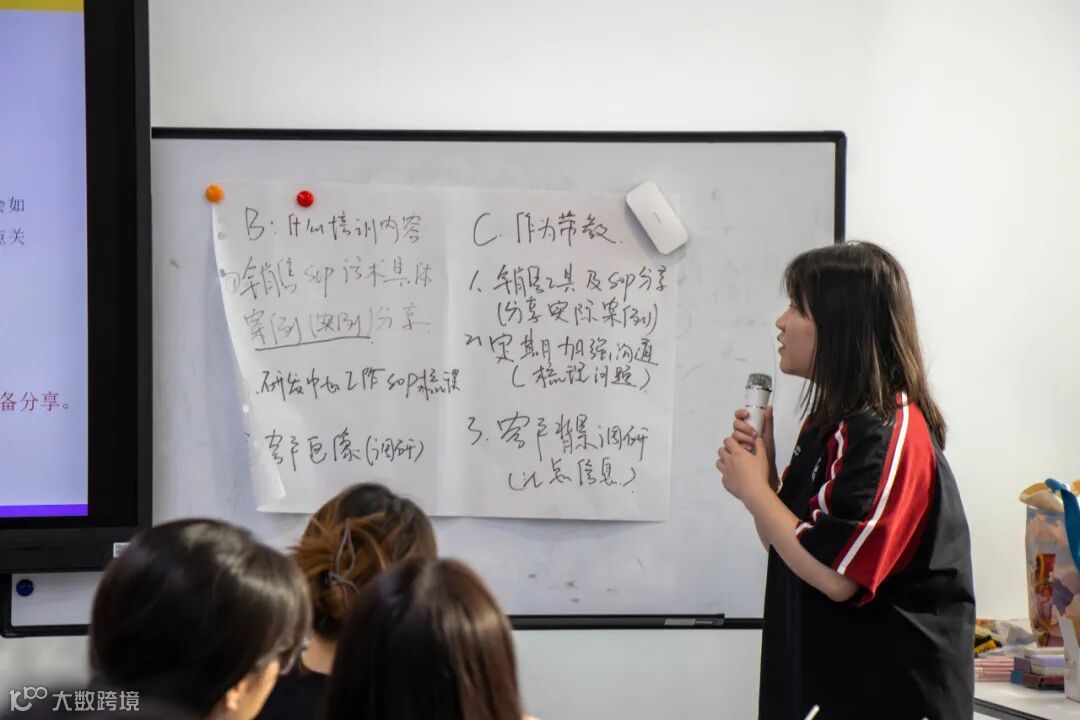 会如
点关
备分享。
B: 什么培训内容
销售SOP话术具体
案例(实例)分享.
研发中心工作SOP梳理
客户画像(调研)
C. 作为带教.
1. 销售工具及SOP分享
(分享实际案例)
2. 定期加强沟通
(梳理问题)
3. 客户背景调研
(汇总信息)
大数跨境